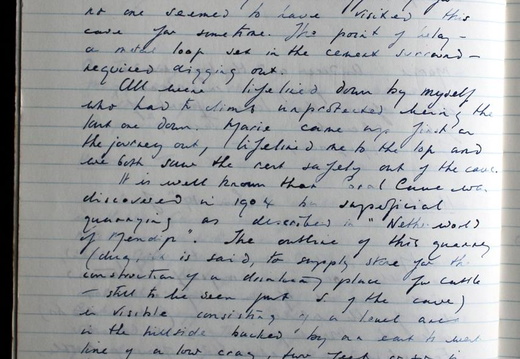 no one seemed to have visited this
cave for sometime. The point of belay -
a metal loop set in the cement surround -
required digging out.
All were lifelined down by myself
who had to climb unprotected being the
last one down. Marie came up first on
the journey out, lifelined me to the top and
we both saw the rest safely out of the cave.
It is well known that Goal Cave was
discovered in 1904 by superficial
quarrying as described in "Netherworld
of Mendip". The outline of this quarry
(dug, it is said, to supply stone for the
construction of a drinking place for cattle
- still to be seen just S of the cave)
is visible consisting of a level area
in the hillside backed by an east to west
line of a low crag, four feet